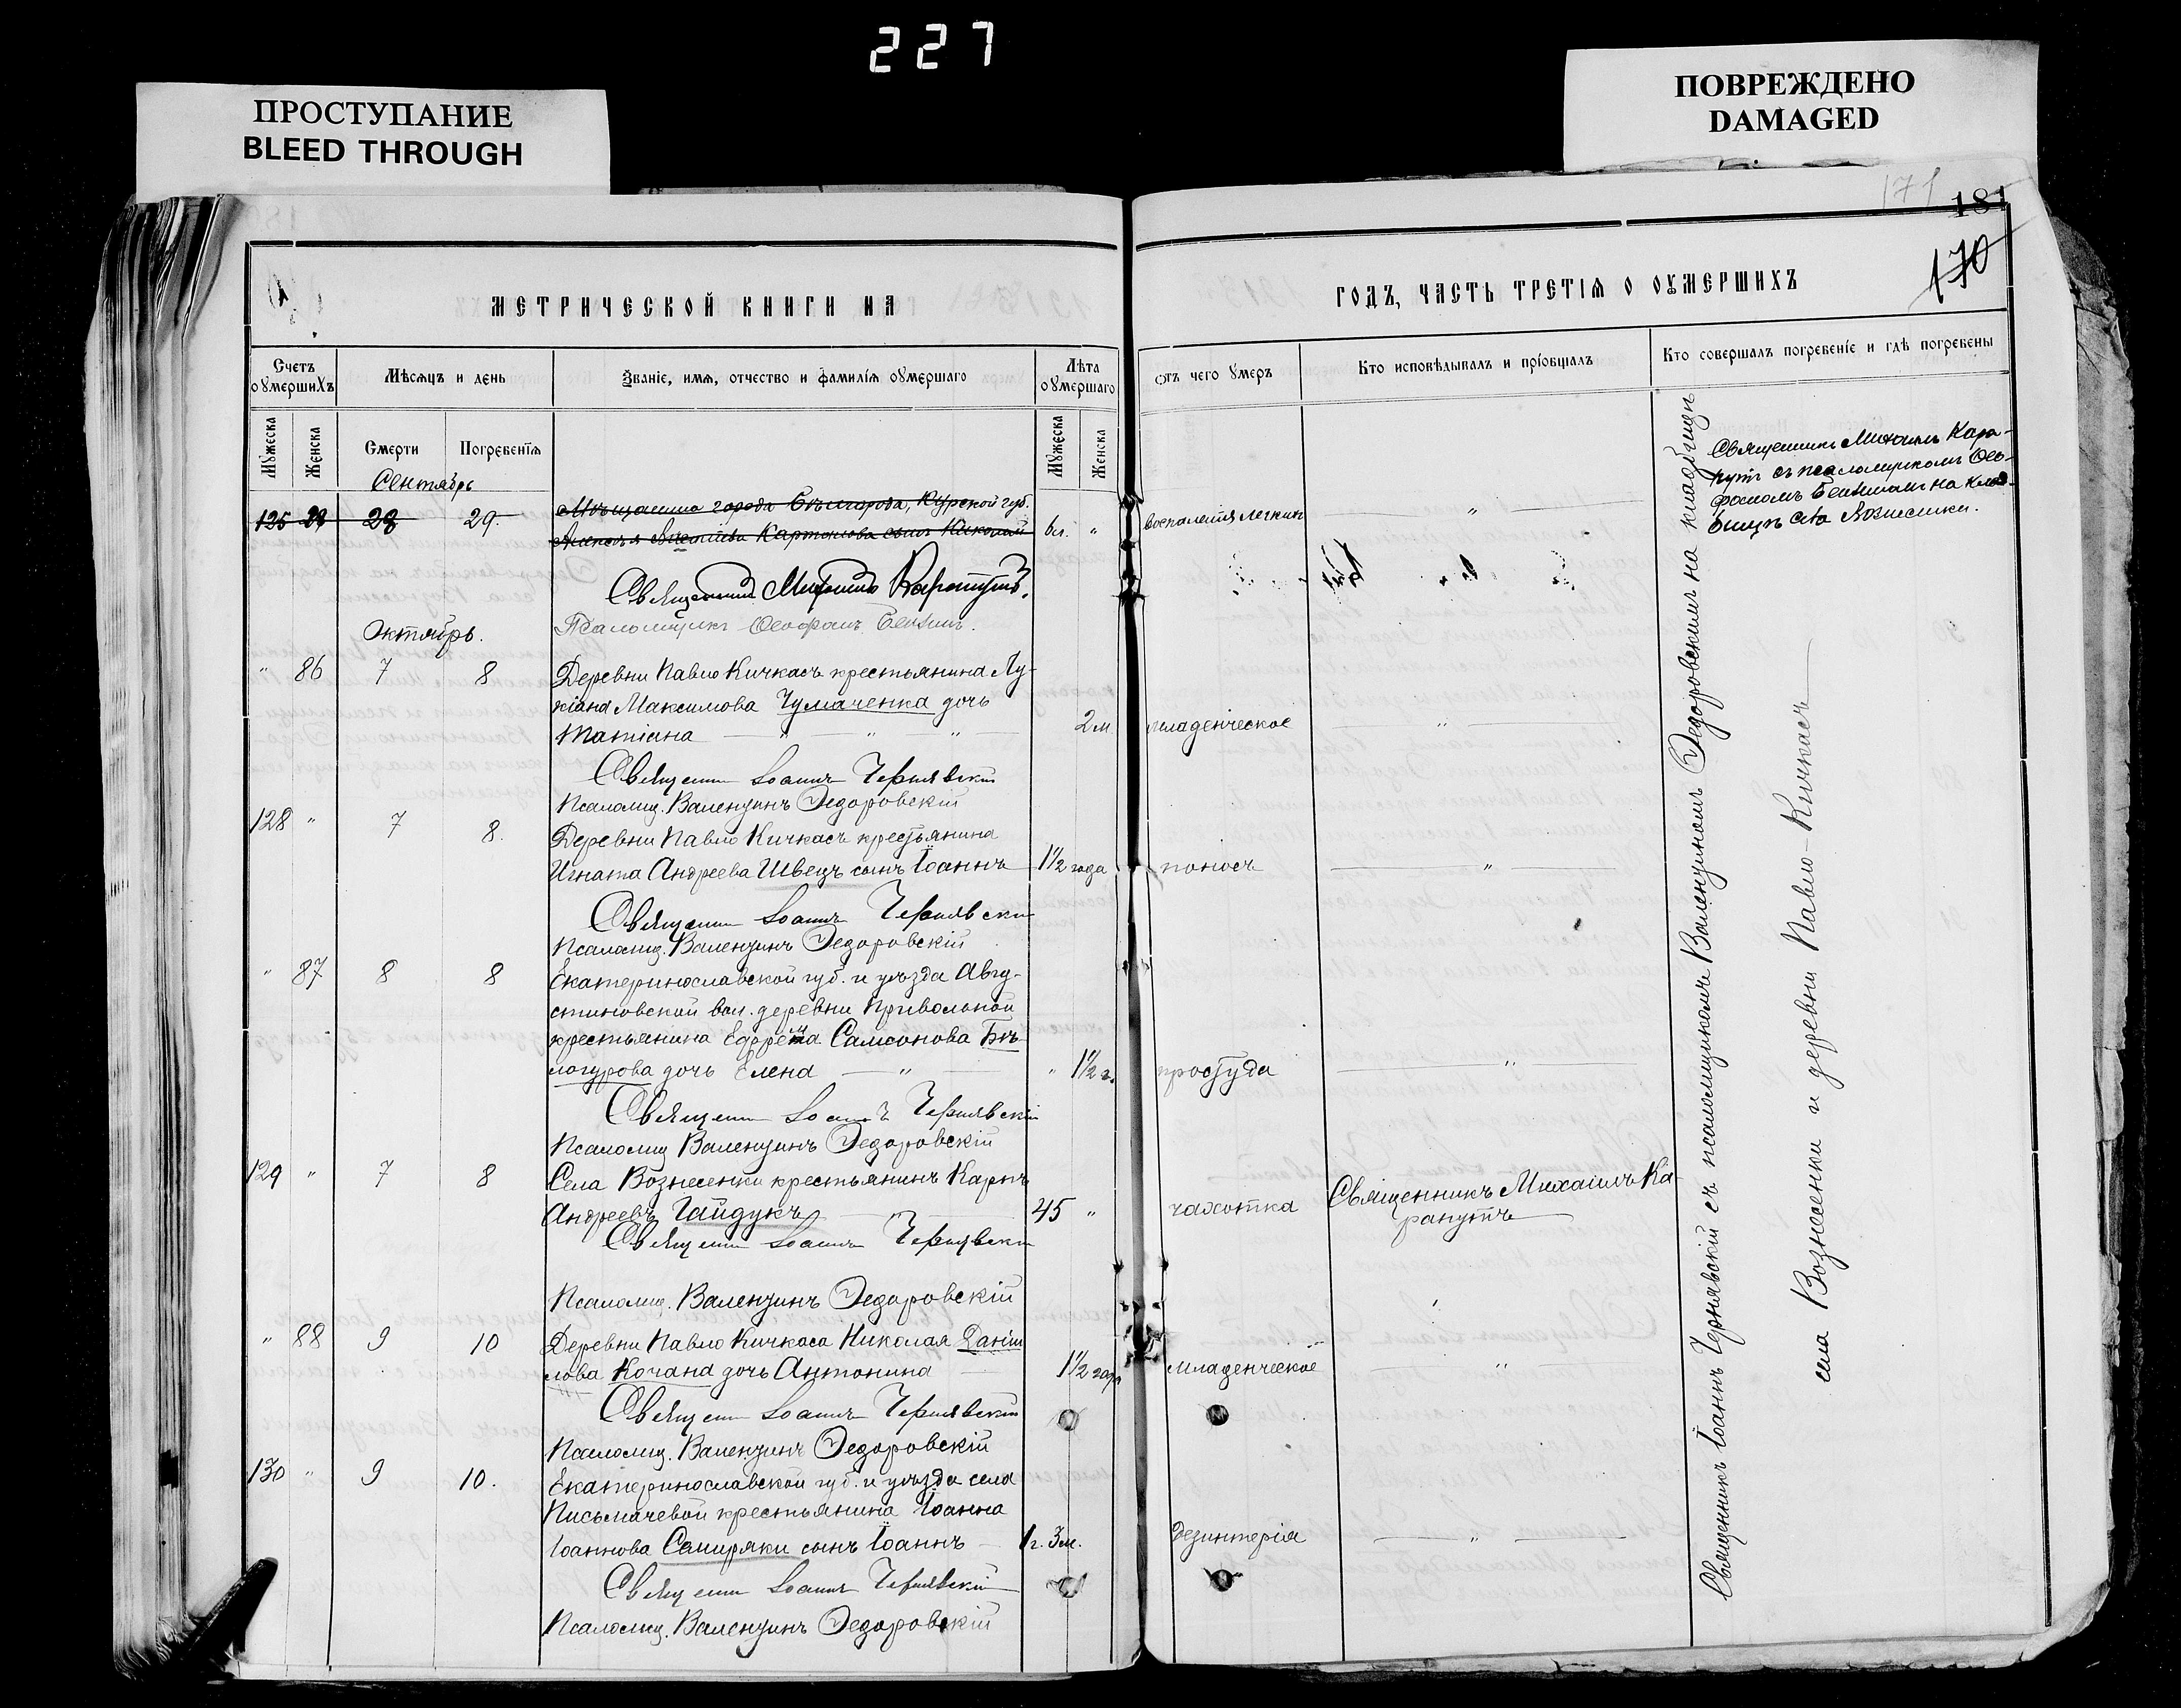 227
ПРОСТУПАНИЕ
BLEED THROUGH
ПОВРЕЖДЕНО
DAMAGED
171
181
170
МЕТРИЧЕСКОЙ КНИГИ НА
ГОДЪ, ЧАСТЬ ТРЕТІЯ О ОУМЕРШИХЪ
Счетъ оумершихъ
Мѣсяцъ и день
Званіе, имя, отчество и фамилія оумершаго
Лѣта оумершаго
отъ чего умеръ
Кто исповѣдывалъ и пріобщалъ
Кто совершалъ погребеніе и гдѣ погребены
Мужеска
Женска
Смерти
Погребенія
Мужеска
Женска
Сентябрь
125 28 29. Мѣщанина города Бѣлгорода, Курской губ.
Картомова сынъ Николай 6 л. " воспаленія легкихъ "
Священникъ Михаилъ Кара-
путъ съ псаломщикомъ Ѳео-
фаномъ на клад-
бищѣ с. Вознесенки.
Священникъ Михаилъ Карапутъ.
Псаломщикъ Ѳеофанъ
Октябрь.
" 86 7 8 Деревни Павло Кичкасъ крестьянина Лу-
кіана Максимова Чумаченка дочь
Татіана " " " 2 м. младенческое "
Священ Іоаннъ Чернявскій
Псаломщ. Валентинъ Ѳедоровскій
128 " 7 8. Деревни Павло Кичкасъ крестьянина
Игната Андреева Швецъ сынъ Іоаннъ 1½ года поносъ "
Священ Іоаннъ Чернявскій
Псаломщ. Валентинъ Ѳедоровскій
" 87 8 8 Екатеринославской губ. и уѣзда Авгу-
стиновской вол. деревни Привольной
крестьянина Ефрема Самсонова Бѣ-
логурова дочь Елена " " 1½ г. простуда "
Священ Іоаннъ Чернявскій
Псаломщ Валентинъ Ѳедоровскій
129 " 7 8 Села Вознесенки крестьянинъ Карпъ
Андреевъ Гайдукъ " 45 " чахотка Священникъ Михаилъ Ка-
рапутъ
Священ Іоаннъ Чернявскій
Псаломщ. Валентинъ Ѳедоровскій
" 88 9 10 Деревни Павло Кичкаса Николая Даніи
лова Кочана дочь Антонина 1½ года младенческое "
Священ Іоаннъ Чернявскій
Псаломщ. Валентинъ Ѳедоровскій
130 " 9 10. Екатеринославской губ. и уѣзда села
Письмачевой крестьянина Іоанна
Іоаннова Самиряки сынъ Іоаннъ 1 г. 3 м. дезинтерія "
Священ Іоаннъ Чернявскій
Псаломщ. Валентинъ Ѳедоровскій
Священникъ Іоаннъ Чернявскій съ псаломщикомъ Валентиномъ Ѳедоровскимъ на кладбищѣ
села Вознесенки и деревни Павло-Кичкасъ